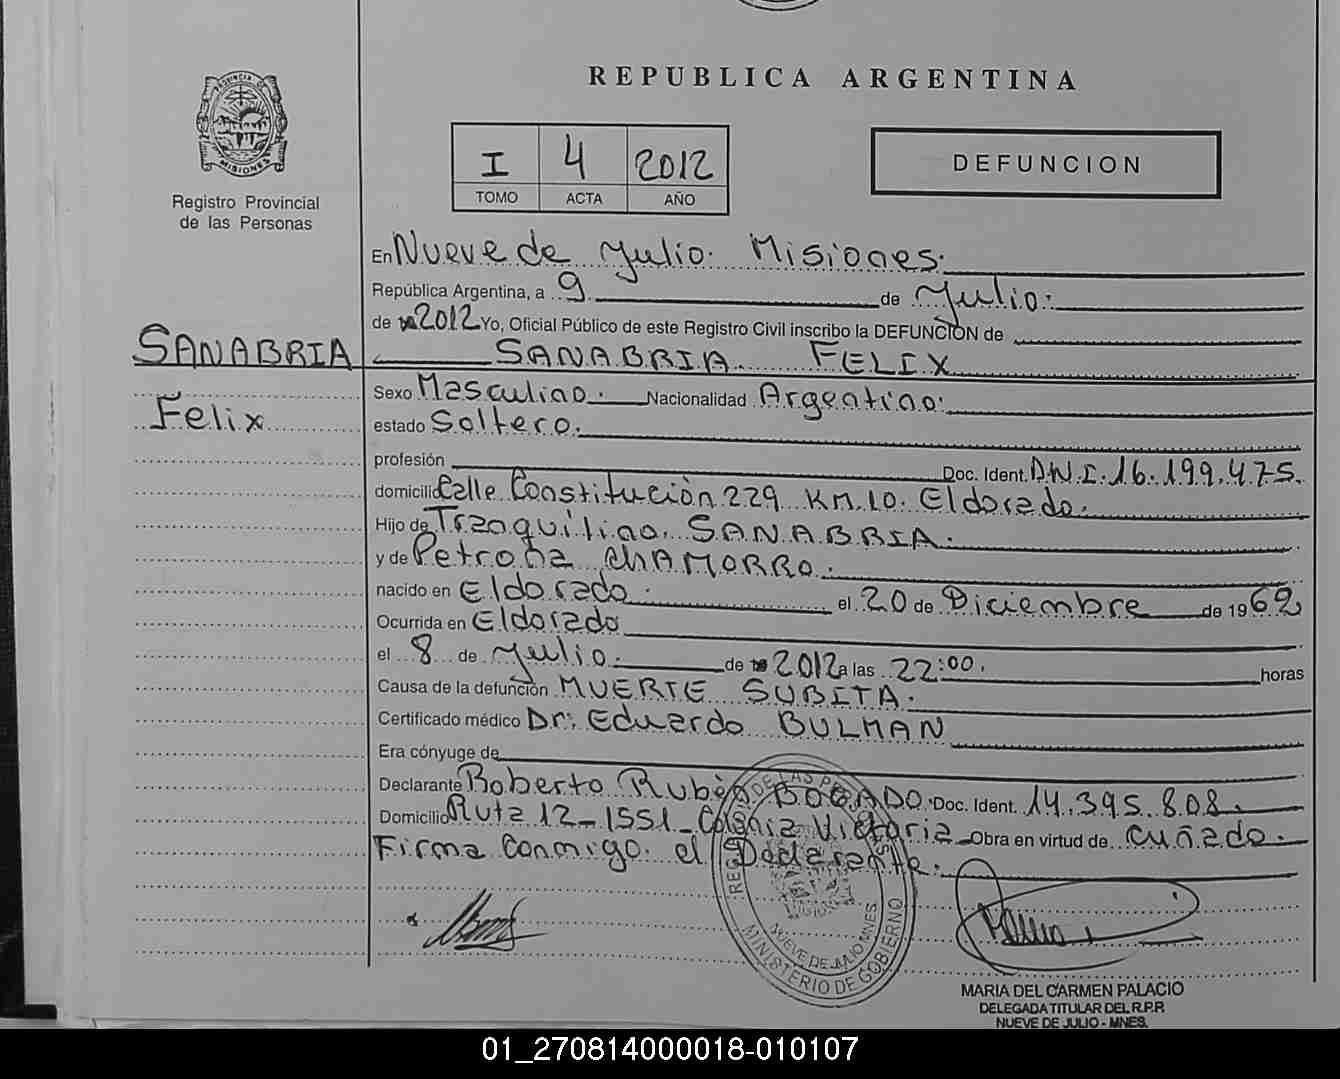 REPUBLICA ARGENTINA
PROVINCIA DE
MISIONES
Registro Provincial
de las Personas
I 4 2012
TOMO ACTA AÑO
DEFUNCION
En Nueve de Julio. Misiones.
República Argentina, a 9 de Julio.
de 2012 Yo, Oficial Público de este Registro Civil inscribo la DEFUNCION de
SANABRIA SANABRIA FELIX
Felix
Sexo Masculino. Nacionalidad Argentino.
estado Soltero.
profesión Doc. Ident. D.N.I. 16.199.475.
domicilio Calle Constitución 229 KM.10. Eldorado.
Hijo de Tranquilino SANABRIA.
y de Petrona CHAMORRO.
nacido en Eldorado. el 20 de Diciembre de 1962
Ocurrida en Eldorado
el 8 de Julio. de 2012 a las 22:00. horas
Causa de la defunción MUERTE SUBITA.
Certificado médico Dr. Eduardo BULMAN
Era cónyuge de
Declarante Roberto Rubén BOGADO. Doc. Ident. 14.395.808.
Domicilio Ruta 12-1551-Colonia Victoria Obra en virtud de cuñado.
Firma conmigo el Declarante.
DE LAS PER
NUEVE DE JULIO MNES.
MINISTERIO DE GOBIERNO
MARIA DEL CARMEN PALACIO
DELEGADA TITULAR DEL R.P.P.
NUEVE DE JULIO - MNES.
01_270814000018-010107